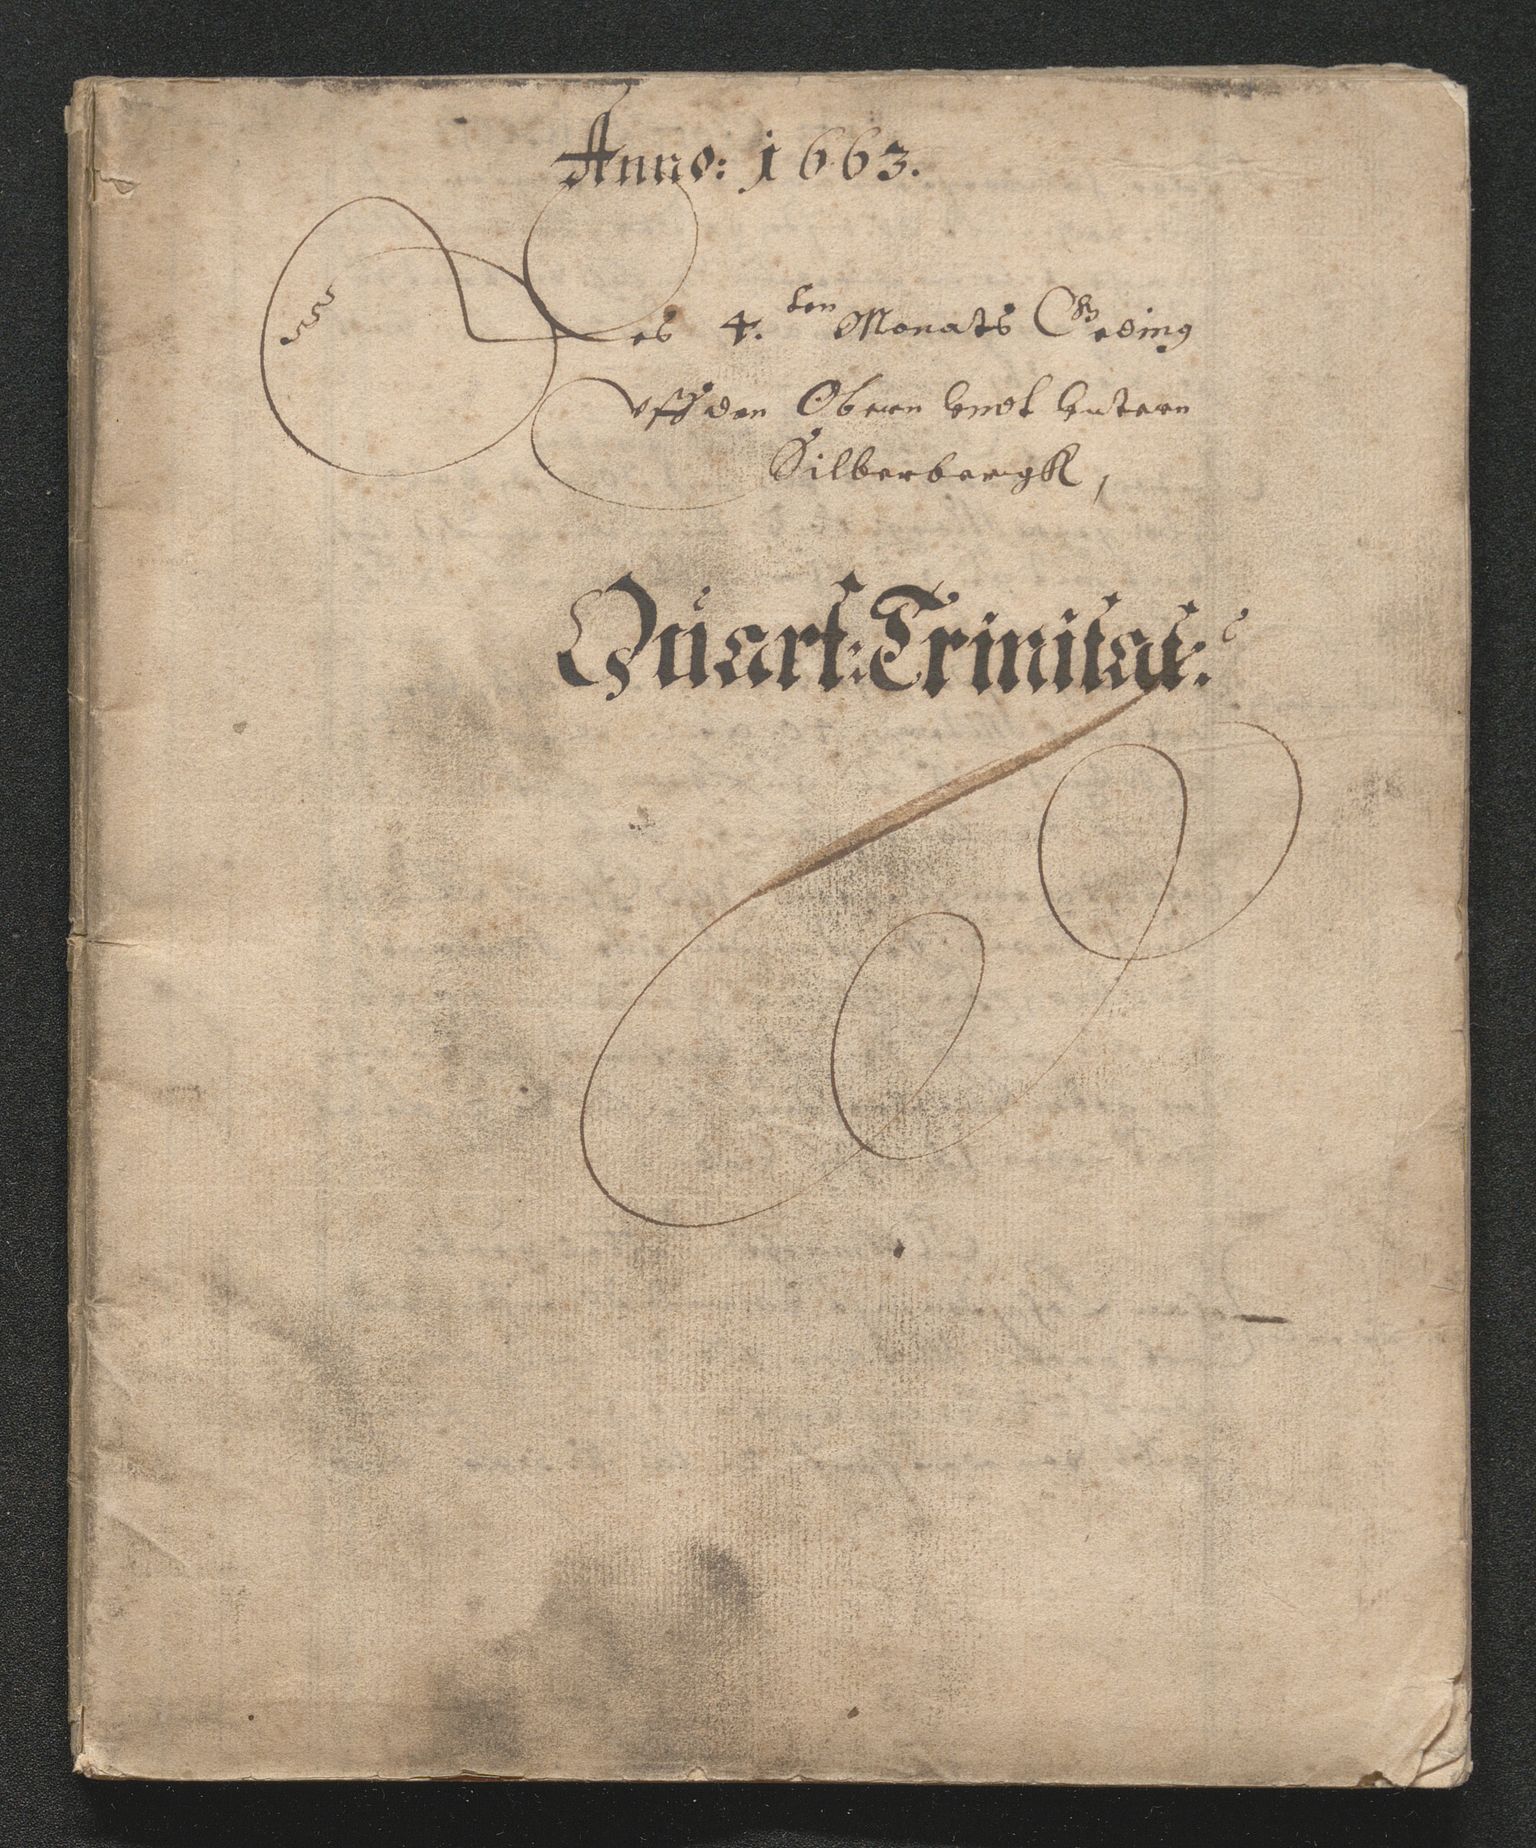 Anno: 1663.
Des 4.ten Monats Geding
vff den Obern vndt Vntern
Silberbergk,
Quart: Trinitat: